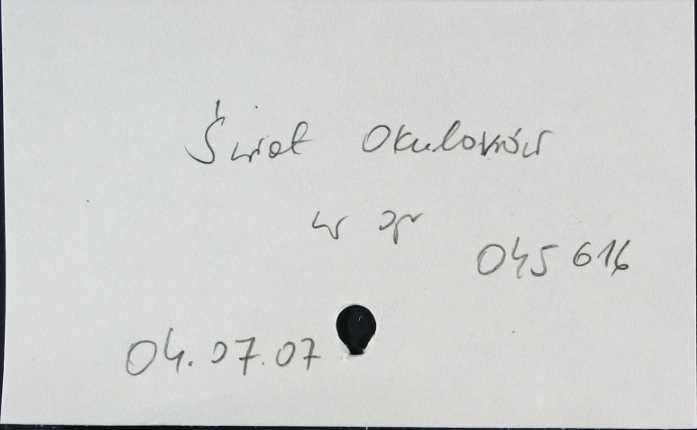 Świat Okularów
w opr
045 616
04.07.07